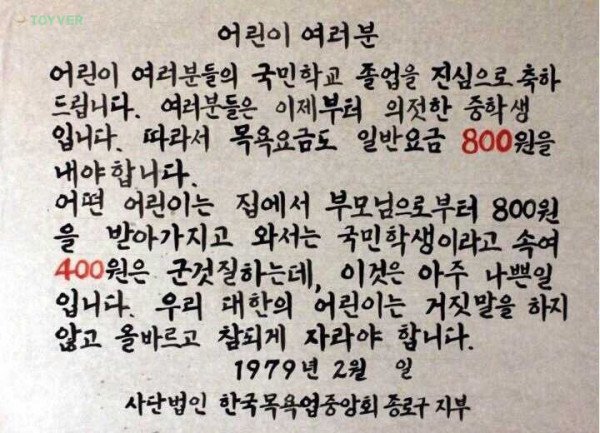 TOYVER
어린이 여러분
어린이 여러분들의 국민학교 졸업을 진심으로 축하
드립니다. 여러분들은 이제부터 의젓한 중학생
입니다. 따라서 목욕요금도 일반요금 800원을
내야합니다.
어떤 어린이는 집에서 부모님으로부터 800원
을 받아가지고 와서는 국민학생이라고 속여
400원은 군것질하는데, 이것은 아주 나쁜일
입니다. 우리 대한의 어린이는 거짓말을 하지
않고 올바르고 참되게 자라야 합니다.
1979년 2월 일
사단법인 한국목욕업중앙회 종로구 지부